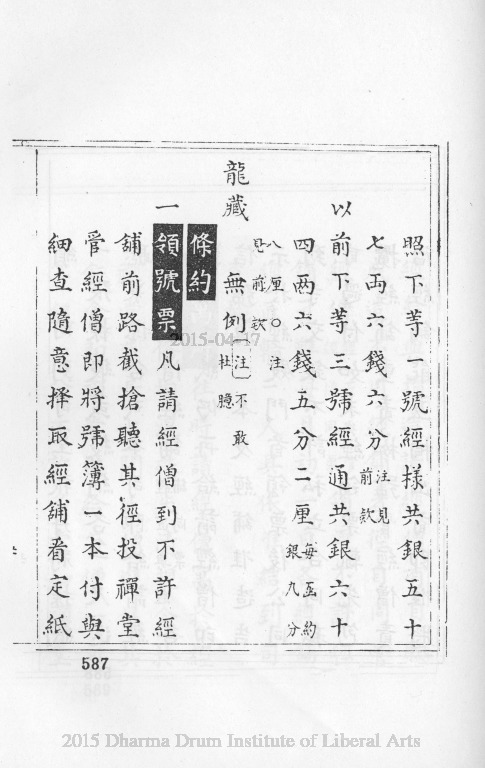 照下等一號經樣共銀五十
七兩六錢六分注見前欵
以前下等三號經通共銀六十
四兩六錢五分二厘每函約銀九分
八厘〇注見前欵
龍藏無例注不敢杜臆
條約
一領號票凡請經僧到不許經
舖前路截搶聽其徑投禪堂
管經僧即將號簿一本付與
細查隨意擇取經舖看定紙
587
2015-04-
2015 Dharma Drum Institute of Liberal Arts